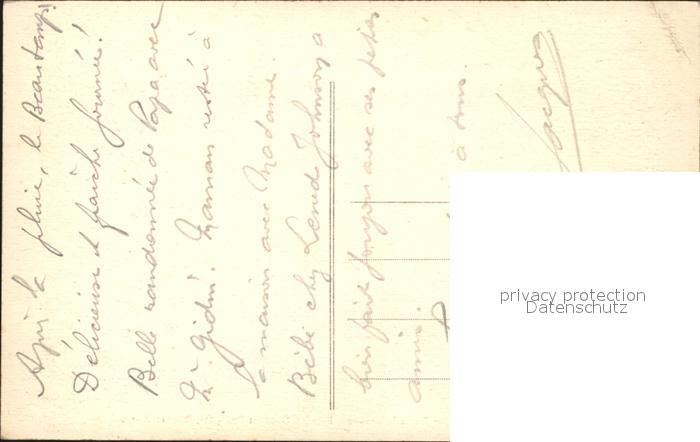 Après la pluie, le Beau temps!
Délicieuse et fraîche journée!
Belle randonnée de Papa avec
Mr Gidri. Maman resté à
la maison avec Madame.
Bébé chez Lened Johnson a
bien fait joujou avec ses petits
amis.
à tous.
Jacques
privacy protection
Datenschutz